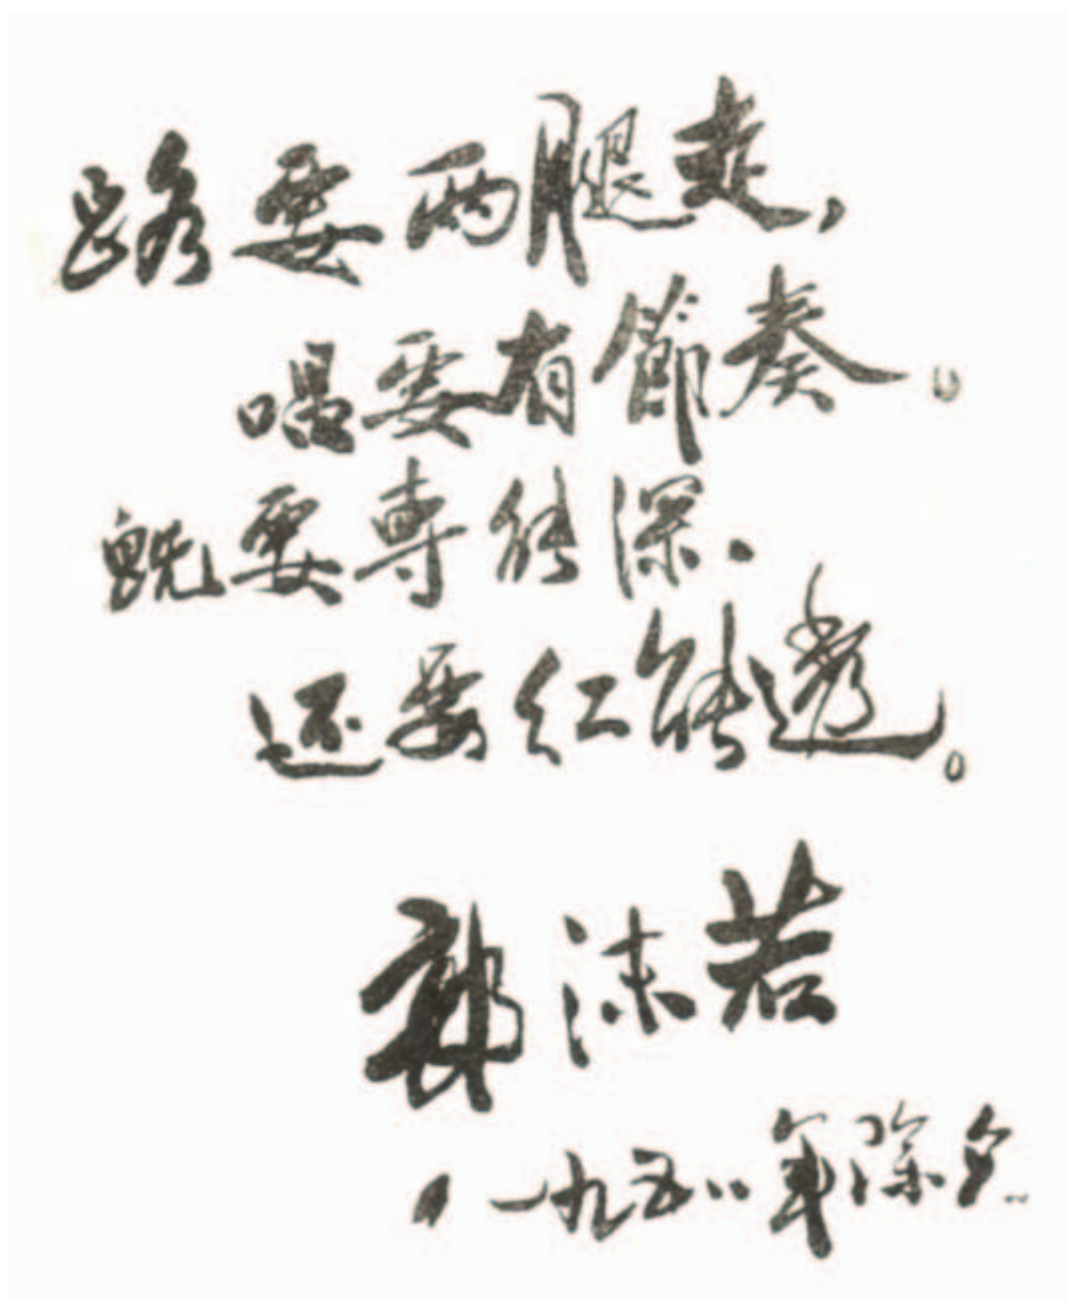 路要两腿走，
唱要有節奏。
既要專能深，
还要红能透。
郭沫若
一九五八年除夕